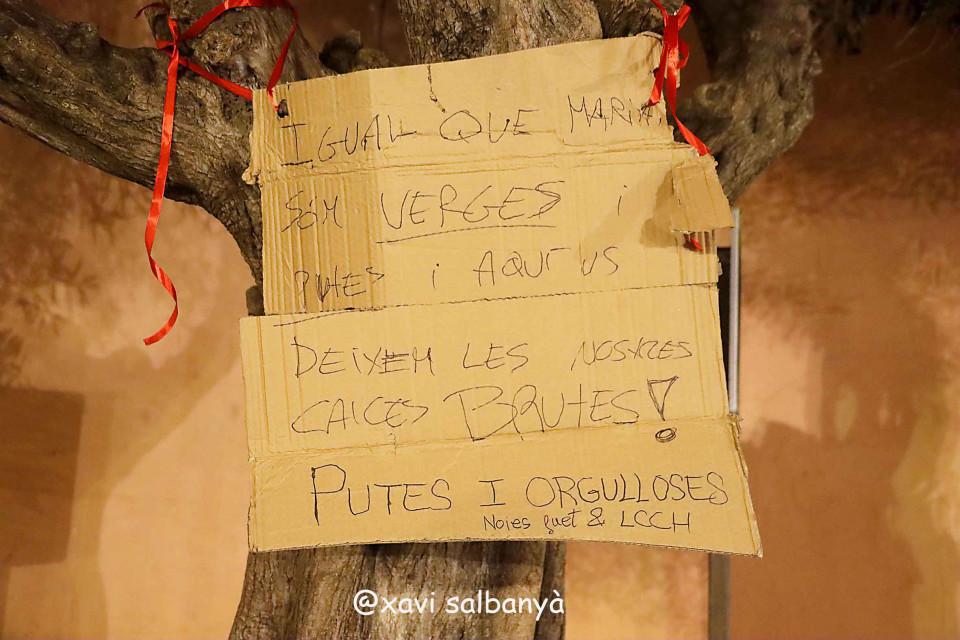 IGUAL QUE MARIA,
SÓM VERGES i
PUTES i AQUÍ US
DEIXEM LES NOSTRES
CALCES BRUTES!
PUTES I ORGULLOSES
Noies fuet & LCCH
@xavi salbanyà